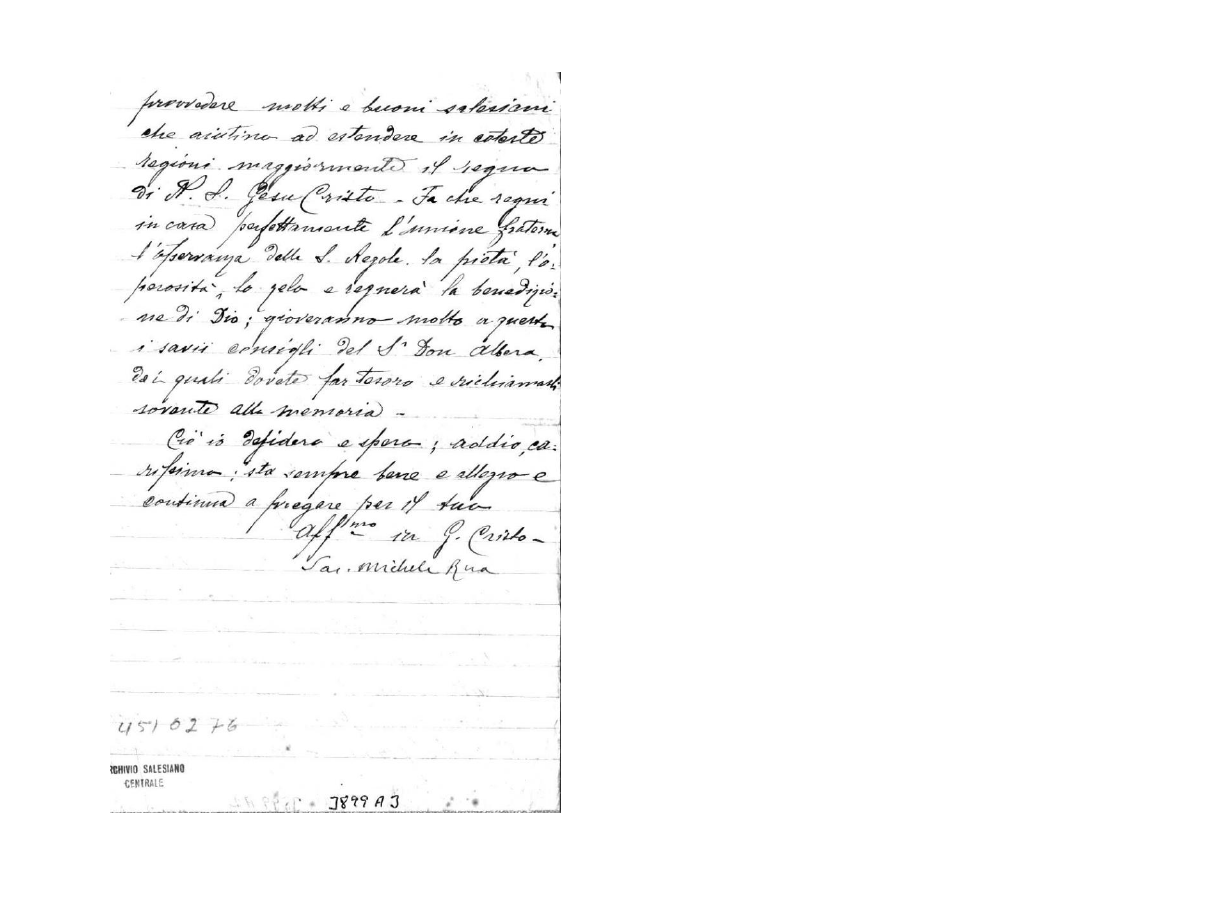 provvedere molti e buoni salesiani
che aiutino ad estendere in coteste
regioni maggiormente il regno
di N. S. Gesu Cristo - Fa che regni
in casa perfettamente l'unione fraterna
l'osservanza delle S. Regole, la pietà, l'o=
perosità, lo zelo e regnerà la benedizio=
ne di Dio; gioveranno molto a questo
i savii consigli del S.r Don Albera,
dei quali dovete far tesoro e richiamarli
sovente alla memoria -
Ciò io desidero e spero; addio, ca=
rissimo; sta sempre bene e allegro e
continua a pregare per il tuo
Aff.mo in G. Cristo -
Sac. Michele Rua
4510276
RCHIVIO SALESIANO
CENTRALE
3899 A 3